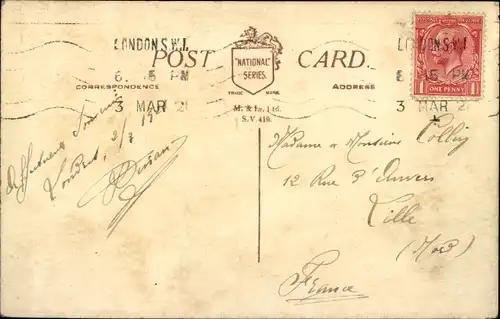 LONDON.S.W.1. LONDON.S.W.1.
POST CARD.
"NATIONAL"
SERIES.
6. 15 PM 15 PM
CORRESPONDENCE ADDRESS
TRADE MARK
3 MAR 21 3 MAR 21
M. & L. Ltd.
S.V 419.
POSTAGE REVENUE
ONE PENNY
Affectueux
Londres, 2/3
Madame & Monsieur
12 Rue d'Anvers
Lille
(Nord)
France